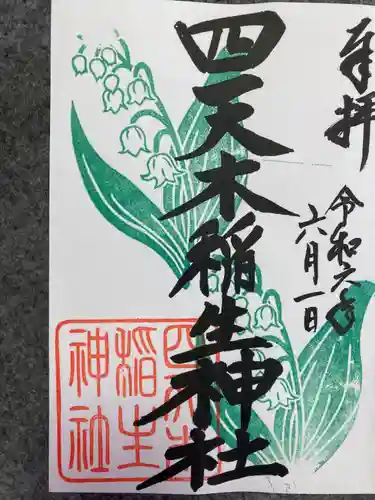 奉拝
令和六年
六月一日
四天木稲生神社
四天木
稲生
神社